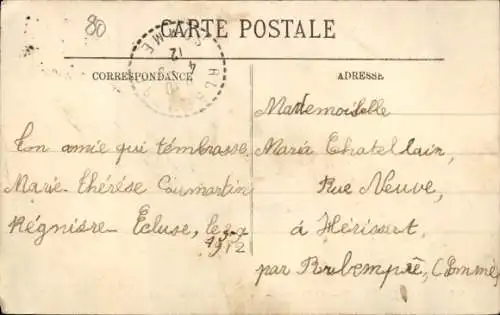 80
CARTE POSTALE
CORRESPONDANCE
ADRESSE
Ton amie qui t'embrasse.
Marie-Thérèse Caumartin
Régnière-Écluse, le
1912
Mademoiselle
Maria Chatellain,
Rue Neuve,
à Hérissart,
par Rubempré, (Somme)